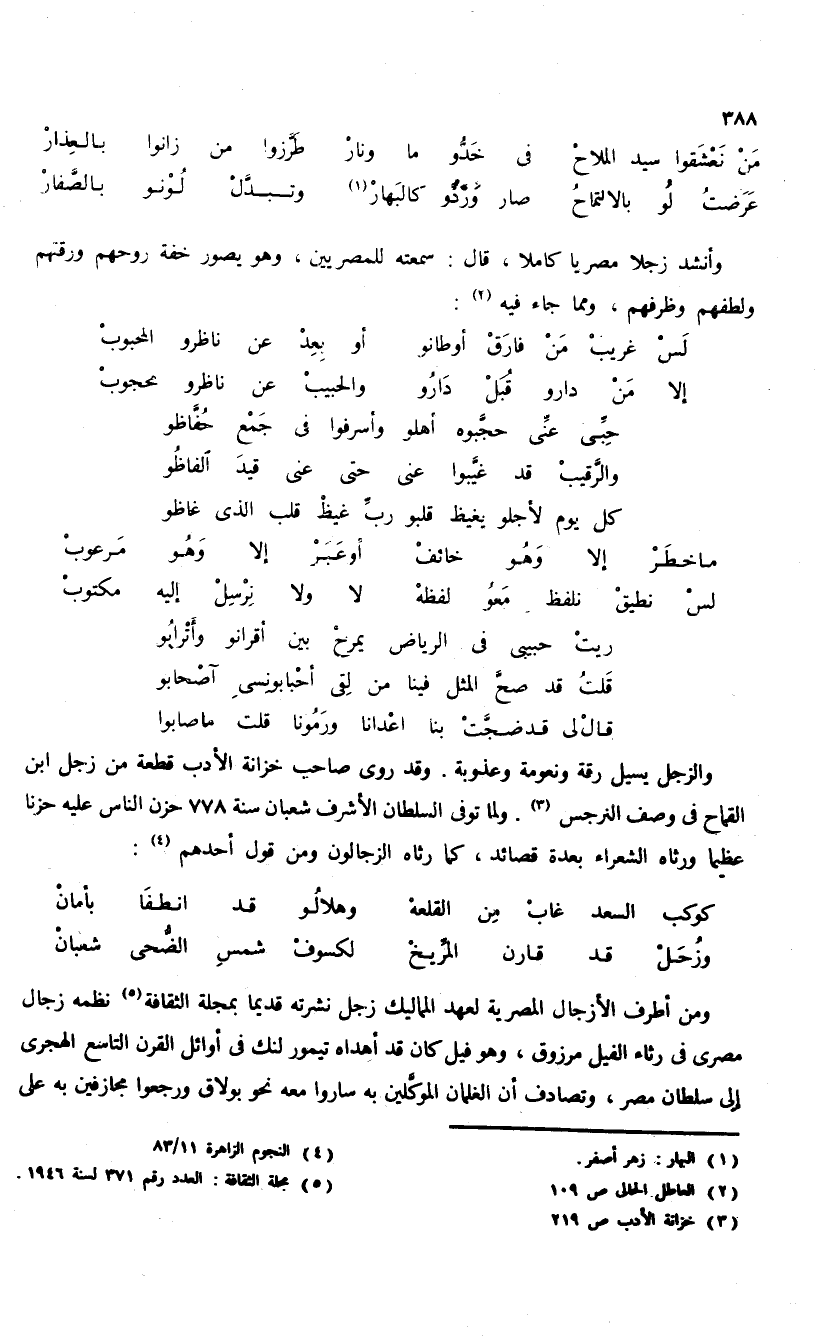 ٣٨٨
مَنْ نَعْشَقوا سيد الملاحْ فى خَدُّو ما ونارْ طَرَّزوا من زانوا بالعِذارْ
عَرَضتُ لُو بالالتماحُ صار وَرْدُّو كالبَهارْ(١) وتبـدَّلْ لُوْنو بالصَّفارْ
وأنشد زجلا مصريا كاملا ، قال : سمعته للمصريين ، وهو يصور خفة روحهم ورقتهم
ولطفهم وظرفهم ، ومما جاء فيه (٢) :
لَسْ غريبْ مَنْ فارَقْ أوطانو أو بِعِدْ عن ناظرو المحبوبْ
إلا مَنْ دارو قُبَلْ دَارُو والحبيبْ عن ناظرو محجوبْ
حِبِّى عنِّى حجَّبوه أهلو وأسرفوا فى جَمْع حُفَّاظو
والرَّقيبْ قد غيَّبوا عنى حتى عنى قيدَ ألفاظُو
كل يوم لأجلو يغيظ قلبو ربِّ غيظْ قلب الذى غاظو
ماخطَرْ إلا وَهُو خائفْ أوعَبَرْ إلا وَهُو مَرعوبْ
لسْ نطيقْ نلفظ مَعوُ لفظهْ لا ولا نِرْسِلْ إليه مكتوبْ
ريتْ حبيبى فى الرياض يمرحْ بين أقرانو وأَتْرابُو
قَلتُ قد صحَّ المثل فينا من لِقِى أحْبابونِسِى آصْحابو
قالْ لى قدضجَّتْ بنا اعْدانا ورَمُونا قلت ماصابوا
والزجل يسيل رقة ونعومة وعذوبة . وقد روى صاحب خزانة الأدب قطعة من زجل ابن
القماح فى وصف النرجس (٣) . ولما توفى السلطان الأشرف شعبان سنة ٧٧٨ حزن الناس عليه حزنا
عظيما ورثاه الشعراء بعدة قصائد ، كما رثاه الزجالون ومن قول أحدهم (٤) :
كوكب السعد غابْ مِن القلعهْ وهلالُو قد انطفَا بأمانْ
وزُحَلْ قد قارن المرِّيخْ لكسوفْ شمسِ الضُّحى شعبانْ
ومن أطرف الأزجال المصرية لعهد المماليك زجل نشرته قديما بمجلة الثقافة(٥) نظمه زجال
مصرى فى رثاء الفيل مرزوق ، وهو فيل كان قد أهداه تيمور لنك فى أوائل القرن التاسع الهجرى
إلى سلطان مصر ، وتصادف أن الغلمان الموكَّلين به ساروا معه نحو بولاق ورجعوا مجازفين به على
(١) البهار : زهر أصفر.
(٢) العاطل الحالى ص ١٠٩
(٣) خزانة الأدب ص ٢١٩
(٤) النجوم الزاهرة ٨٣/١١
(٥) مجلة الثقافة : العدد رقم ٣٧١ لسنة ١٩٤٦ .